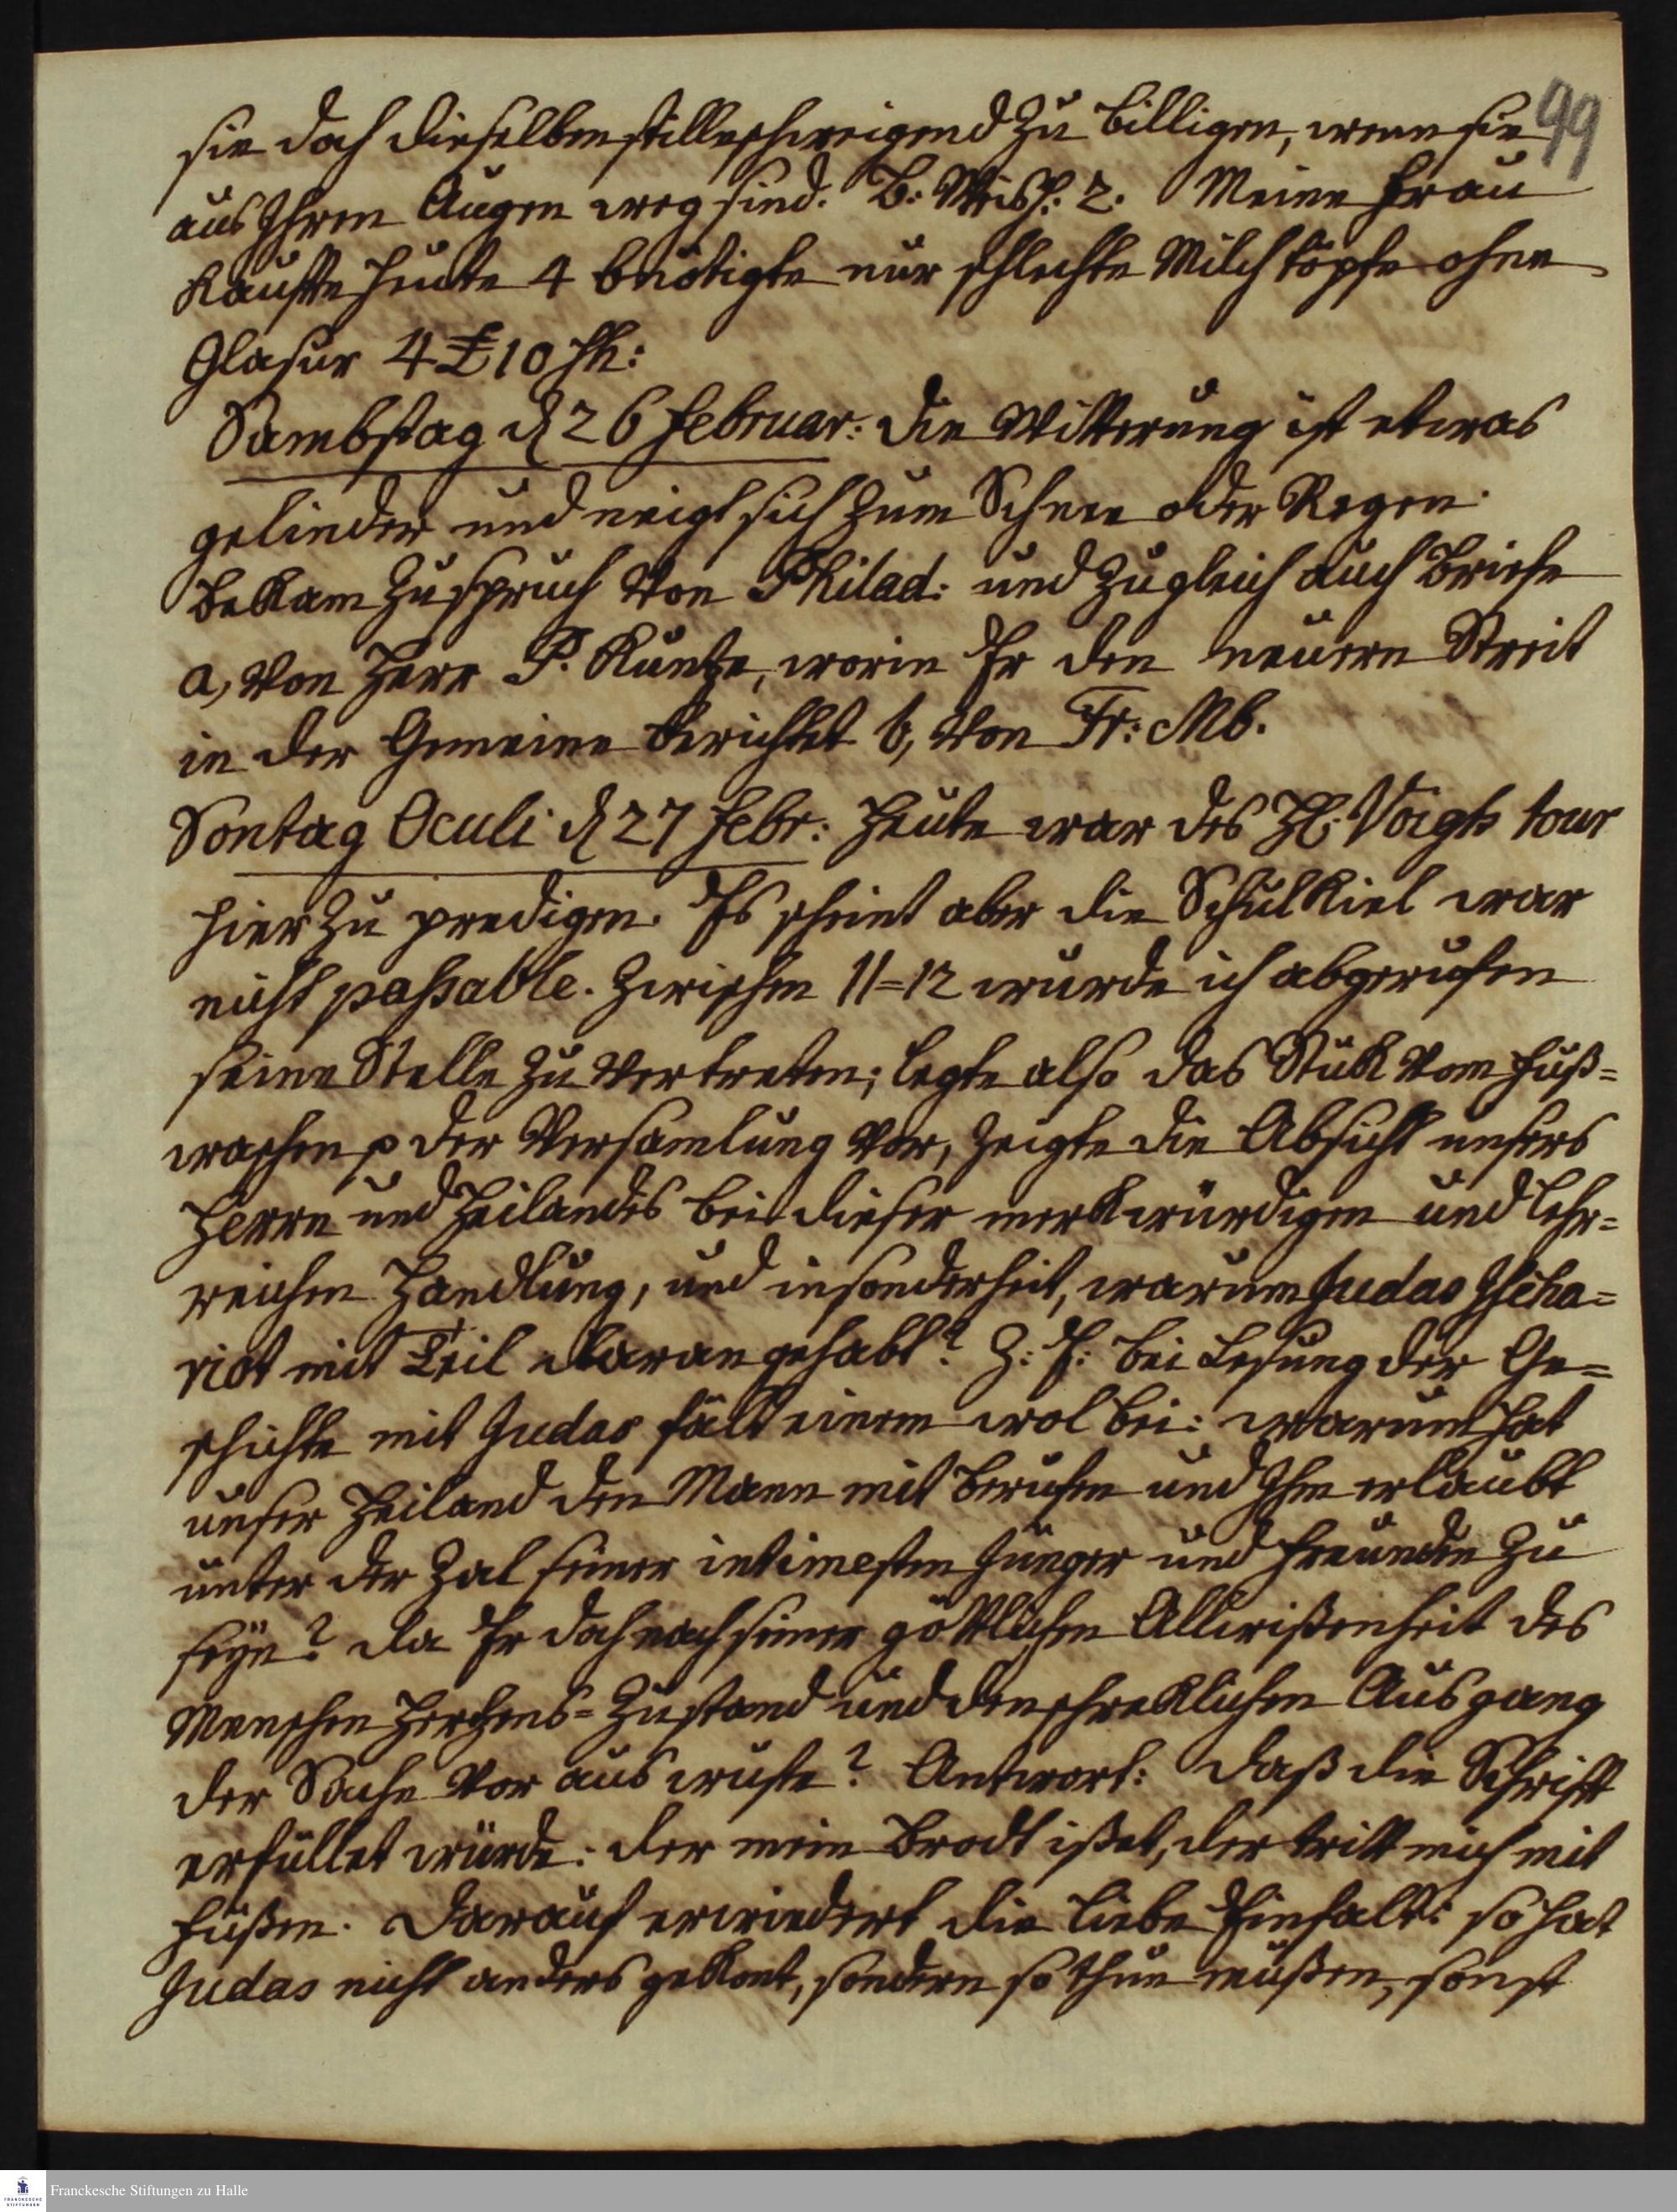 99
sie doch dieselben stilleschweigend zu billigen, wenn sie
aus Ihren Augen weg sind. B: Weish: 2. Meine Frau
kaufte heute 4 benötigte nur schlechte Milchtöpfe ohne
Glasur 4 £ 10 sh:
Sambstag d 26 Februar: die Witterung ist etwas
gelinder und neigt sich zum Schnee oder Regen.
Bekam Zuspruch von Philad: und zugleich auch Briefe
a, von Herr P. Kuntze, worin Er den neuern Streit
in der Gemeine berichtet b, von Fr: Mb.
Sontag Oculi d 27 Febr: Heute war des HE. Voigts tour
hier zu predigen. Es scheint aber die Schulkiel war
nicht passable. Zwischen 11=12 wurde ich abgerufen
seine Stelle zu vertreten; legte also das Stük vom Fuß=
waschen p der Versamlung vor, zeigte die Absicht unsers
Herrn und Heilandes bei dieser merkwürdigen und lehr=
reichen Handlung, und insonderheit, warum Judas Ischa=
riot mit Teil daran gehabt? Z. E: bei Lesung der Ge=
schichte mit Judas fält einem wol bei: warum hat
unser Heiland den Mann mit berufen und Ihm erlaubt
unter der Zal seiner intimesten Jünger und Freunden zu
seyn? da Er doch nach seiner göttlichen Allwißenheit des
Menschen Herzens=Zustand und den schreklichen Ausgang
der Sache vor aus wuste? Antwort: daß die Schrift
erfüllet würde: der mein Brodt ißet, der tritt mich mit
Füßen. Darauf erwiedert die liebe Einfalt: so hat
Judas nicht anders gekont, sondern so thun müßen, sonst
Franckesche Stiftungen zu Halle